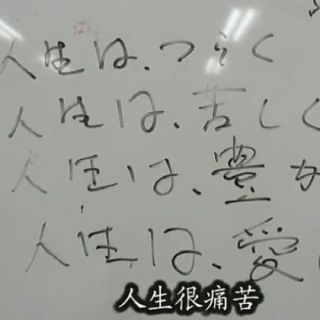 人生は、つらく
人生は、苦しく
人生は、豊か
人生は、愛
人生很痛苦